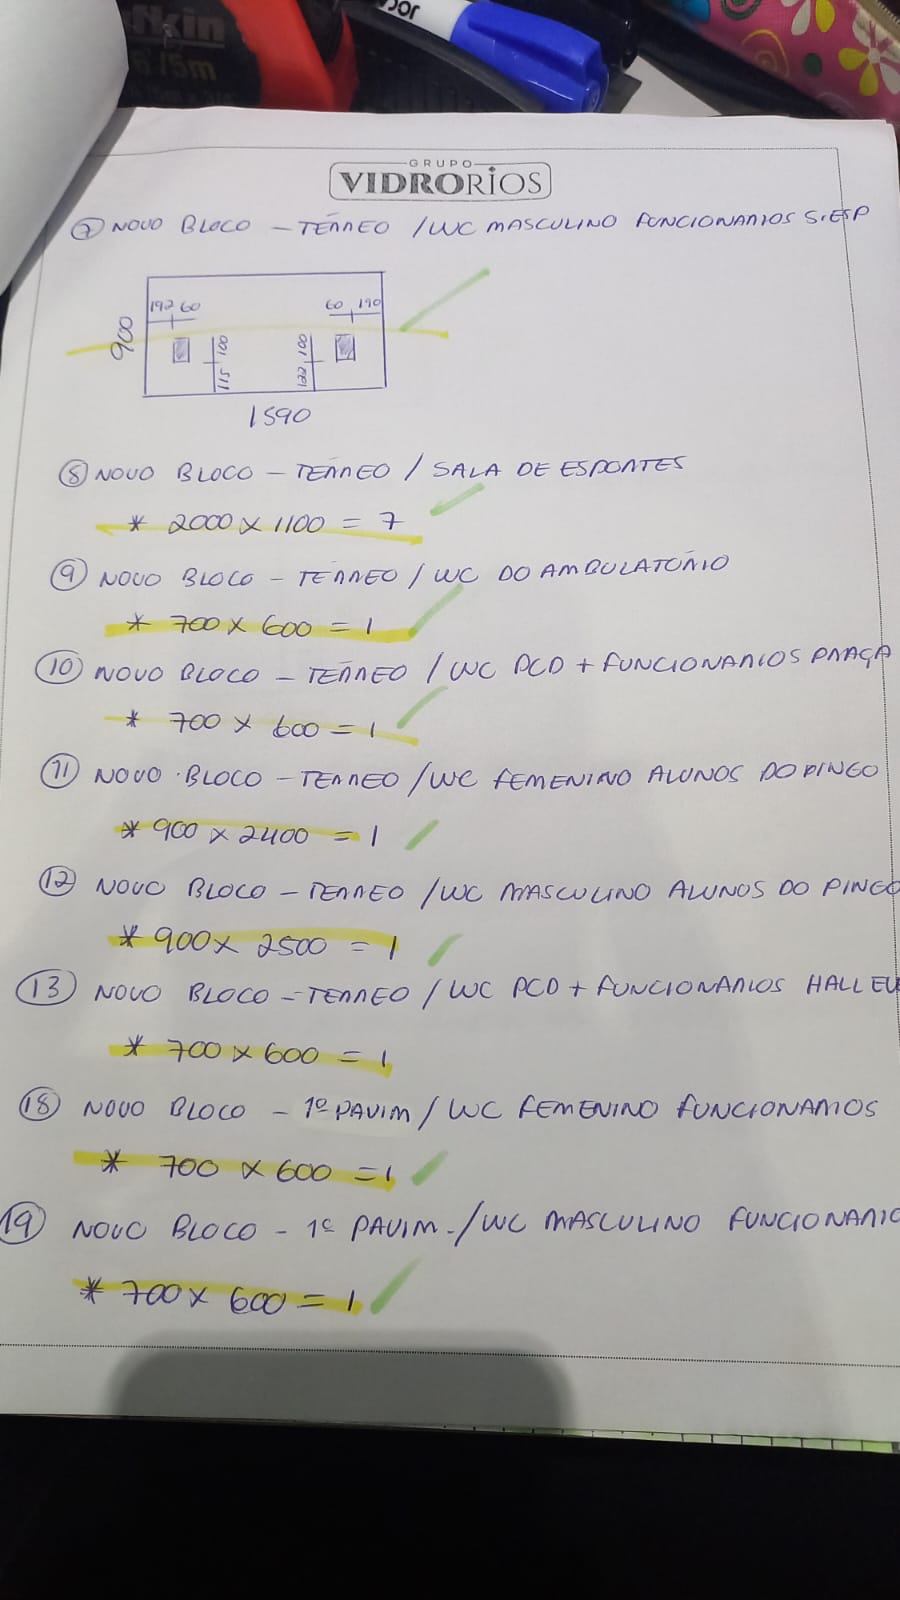 /5m
GRUPO
VIDRORIOS
7 NOVO BLOCO - TÉRREO / WC MASCULINO FUNCIONARIOS S.ESP
192 60
60 190
900
115 100
122 100
1590
8 NOVO BLOCO - TÉRREO / SALA DE ESPORTES
* 2000 x 1100 = 7
9 NOVO BLOCO - TÉRREO / WC DO AMBULATÓRIO
* 700 x 600 = 1
10 NOVO BLOCO - TÉRREO / WC PCD + FUNCIONARIOS PRAÇA
* 700 x 600 = 1
11 NOVO BLOCO - TERREO / WC FEMENINO ALUNOS DO PINGO
* 900 x 2400 = 1
12 NOVO BLOCO - TERREO / WC MASCULINO ALUNOS DO PINGO
* 900 x 2500 = 1
13 NOVO BLOCO - TERREO / WC PCD + FUNCIONÁRIOS HALL
* 700 x 600 = 1
18 NOVO BLOCO - 1º PAVIM / WC FEMENINO FUNCIONARIOS
* 700 x 600 = 1
19 NOVO BLOCO - 1º PAVIM. / WC MASCULINO FUNCIONARIO
* 700 x 600 = 1